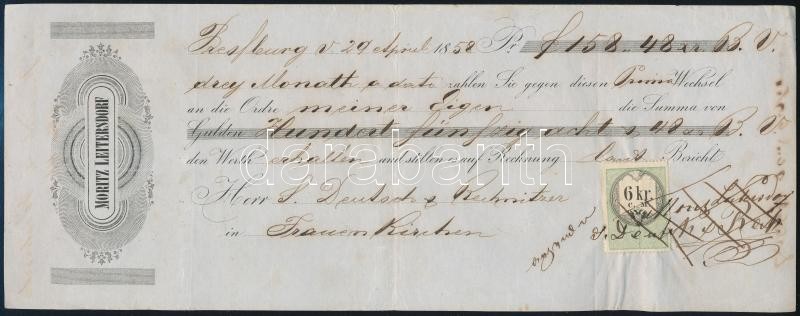 MORITZ LEITERSDORF
Pressburg d 29 April 1858 Pr f 158 „ 48 xr B. V.
drey Monath a dato zahlen Sie gegen diesen Prima Wechsel
an die Ordre meiner Eigen die Summa von
Gulden Hundert fünfzig acht 48 xr B V
den Werth erhalten und stellen es auf Rechnung laut Bericht
Herr S. Deutsch & Rechnitzer
in Frauen Kirchen
6 kr.
C. M.
darabanth